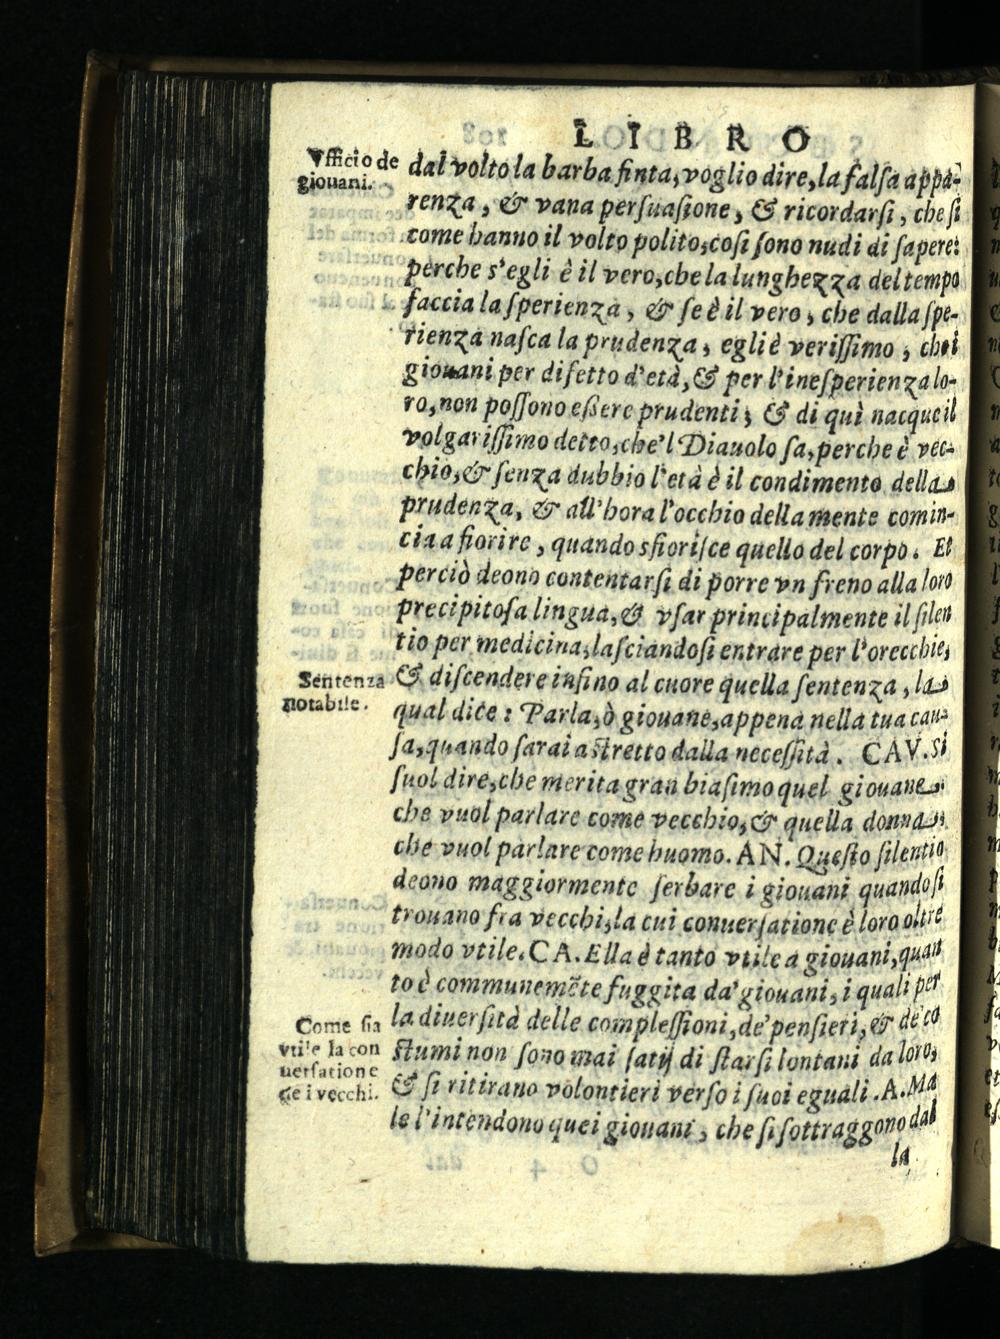 LIBRO
Vfficio de
giouani.
dal volto la barba finta, voglio dire, la falſa appa-
renza, & vana perſuaſione, & ricordarſi, che ſi
come hanno il volto polito, coſi ſono nudi di ſapere:
perche s'egli è il vero, che la lunghezza del tempo
faccia la ſperienza, & ſe è il vero, che dalla ſpe-
rienza naſca la prudenza, egli è veriſſimo, che i
giouani per difetto d'età, & per l'ineſperienza lo-
ro, non poſſono eßere prudenti; & di quì nacque il
volgariſſimo detto, che'l Diauolo ſa, perche è vec-
chio, & ſenza dubbio l'età è il condimento della
prudenza, & all'hora l'occhio della mente comin-
cia a fiorire, quando sfioriſce quello del corpo. Et
perciò deono contentarſi di porre vn freno alla loro
precipitoſa lingua, & vſar principalmente il ſilen
tio per medicina, laſciandoſi entrare per l'orecchie,
Sentenza
notabile.
& diſcendere inſino al cuore quella ſentenza, la
qual dice: Parla, ò giouane, appena nella tua cau-
ſa, quando ſarai aſtretto dalla neceſſità. CAV. Si
ſuol dire, che merita gran biaſimo quel giouane,
che vuol parlare come vecchio, & quella donna,
che vuol parlare come huomo. AN. Queſto ſilentio
deono maggiormente ſerbare i giouani quando ſi
trouano fra vecchi, la cui conuerſatione è loro oltre
modo vtile. CA. Ella è tanto vtile a giouani, quan
to è communemẽte fuggita da' giouani, i quali per
Come ſia
vtile la con
uerſatione
de i vecchi.
la diuerſità delle compleſſioni, de' penſieri, & de' co
ſtumi non ſono mai ſatij di ſtarſi lontani da loro,
& ſi ritirano volontieri verſo i ſuoi eguali. A. Ma
le l'intendono quei giouani, che ſi ſottraggono dal
la